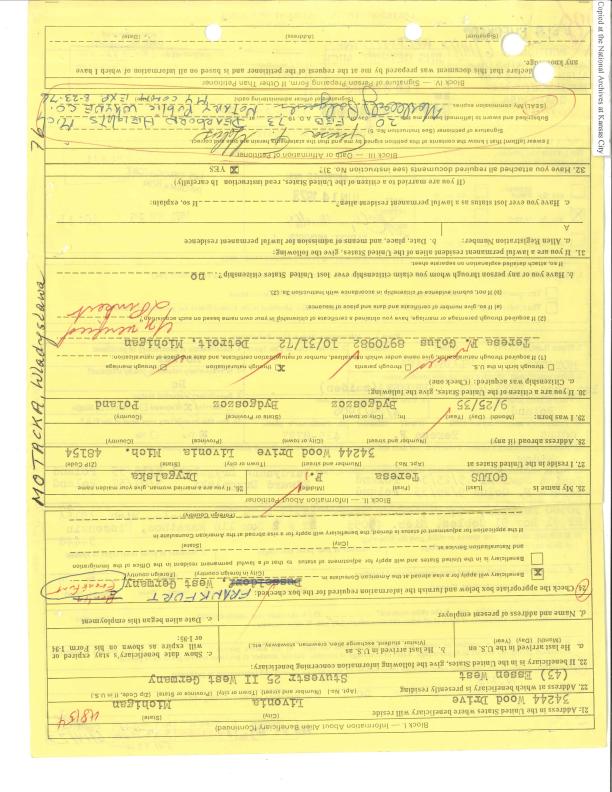 Copied at the National Archives at Kansas City
Block I. — Information About Beneficiary Alien (Continued)
21. Address in the United States where beneficiary will reside (City) (State)
34244 Wood Drive Livonia Michigan 48154
22. Address at which beneficiary is presently residing (Apt. No.) (Number and street) (Town or city) (Province or State) (Zip Code, if in U.S.)
(43) Essen West Stuvestr 25 II West Germany
22. If beneficiary is in the United States, give the following information concerning beneficiary:
a. He last arrived in the U.S. on (Month) (Day) (Year)
b. He last arrived in the U.S. as (Visitor, student, exchange alien, crewman, stowaway, etc.)
c. Show date beneficiary's stay expired or will expire as shown on his Form I-94 or I-95:
d. Name and address of present employer
e. Date alien began this employment
24. Check the appropriate box below and furnish the information required for the box checked:
FRANKFURT
Frankfurt
X Beneficiary will apply for a visa abroad at the American Consulate in West Germany
(City in foreign country) (Foreign country)
Beneficiary is in the United States and will apply for adjustment of status to that of a lawful permanent resident in the Office of the Immigration
and Naturalization Service at
(City) (State)
If the application for adjustment of status is denied, the beneficiary will apply for a visa abroad at the American Consulate in
(Foreign Country)
Block II. — Information About Petitioner
25. My name is (Last) (First) (Middle) 26. If you are a married woman, give your maiden name
GOLUS Teresa P. Drygalska
27. I reside in the United States at (Apt. No.) (Number and street) (Town or city) (State) (ZIP Code)
34244 Wood Drive Livonia Mich. 48154
28. Address abroad (if any) (Number and street) (City or town) (Province) (Country)
29. I was born: (Month) (Day) (Year) In: (City or town) (State or Province) (Country)
9/25/35 Bydgoszcz Bydgoszcz Poland
30. If you are a citizen of the United States, give the following:
a. Citizenship was acquired: (Check one)
through birth in the U.S. through parents X through naturalization through marriage
(1) If acquired through naturalization, give name under which naturalized, number of naturalization certificate and date and place of naturalization.
Teresa P. Golus 8970982 10/31/72 Detroit, Michigan
(2) If acquired through parentage or marriage, have you obtained a certificate of citizenship in your own name based on such acquisition?
(a) If so, give number of certificate and date and place of issuance:
(b) If not, submit evidence of citizenship in accordance with instruction 3a (2).
b. Have you or any person through whom you claim citizenship ever lost United States citizenship? no
If so, attach detailed explanation on separate sheet.
31. If you are a lawful permanent resident alien of the United States, give the following:
a. Alien Registration Number: b. Date, place, and means of admission for lawful permanent residence
A
c. Have you ever lost status as a lawful permanent resident alien? If so, explain:
(If you are married to a citizen of the United States, read instruction 1b carefully)
32. Have you attached all required documents (see instruction No. 3)? X YES
Block III — Oath or Affirmation of Petitioner
I swear (affirm) that I know the contents of this petition signed by me and that the statements herein are true and correct.
Signature of petitioner (See instruction No. 5)
Subscribed and sworn to (affirmed) before me this
20 FEB 73 DEARBORN HEIGHTS MICH
(SEAL) My commission expires
NOTARY PUBLIC WAYNE CO.
MY COMM EXP 8-23-76
(Signature of officer administering oath)
Block IV — Signature of Person Preparing Form, If Other Than Petitioner
I declare that this document was prepared by me at the request of the petitioner and is based on all information of which I have
any knowledge.
(Signature) (Address) (Date)
MOTACKA, Wladyslawa